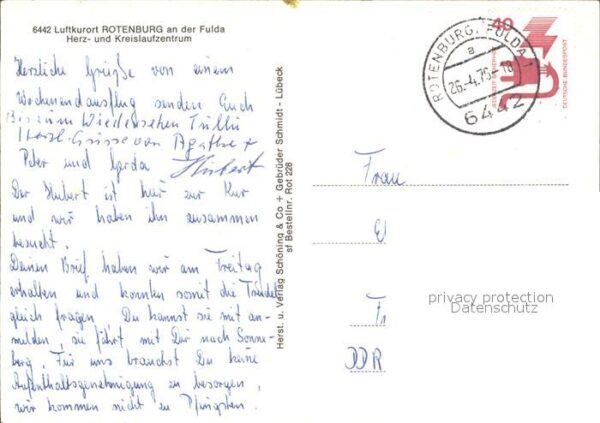 6442 Luftkurort ROTENBURG an der Fulda
Herz- und Kreislaufzentrum
Herzliche Grüße von einem
Wochenendausflug senden Euch
Bis zum Wiedersehen Trülli
Herzl. Grüsse von Agathe +
Peter und Gerda Hubert
Der Hubert ist hier zur Kur
und wir haben ihn zusammen
besucht.
Deinen Brief haben wir am Freitag
erhalten und konnten somit die Trudel
gleich fragen Du kannst sie mit an-
melden, sie fährt mit Dir nach Sonne-
berg. Für uns brauchst Du keine
Aufenthaltsgenehmigung zu besorgen,
wir kommen nicht zu Pfingsten.
Herst. u. Verlag Schöning & Co + Gebrüder Schmidt - Lübeck
sf Bestellnr. Rot 228
40
DEUTSCHE BUNDESPOST
ROTENBURG, FULDA 1
a
26.-4.75-18
6442
Frau
DDR
privacy protection
Datenschutz